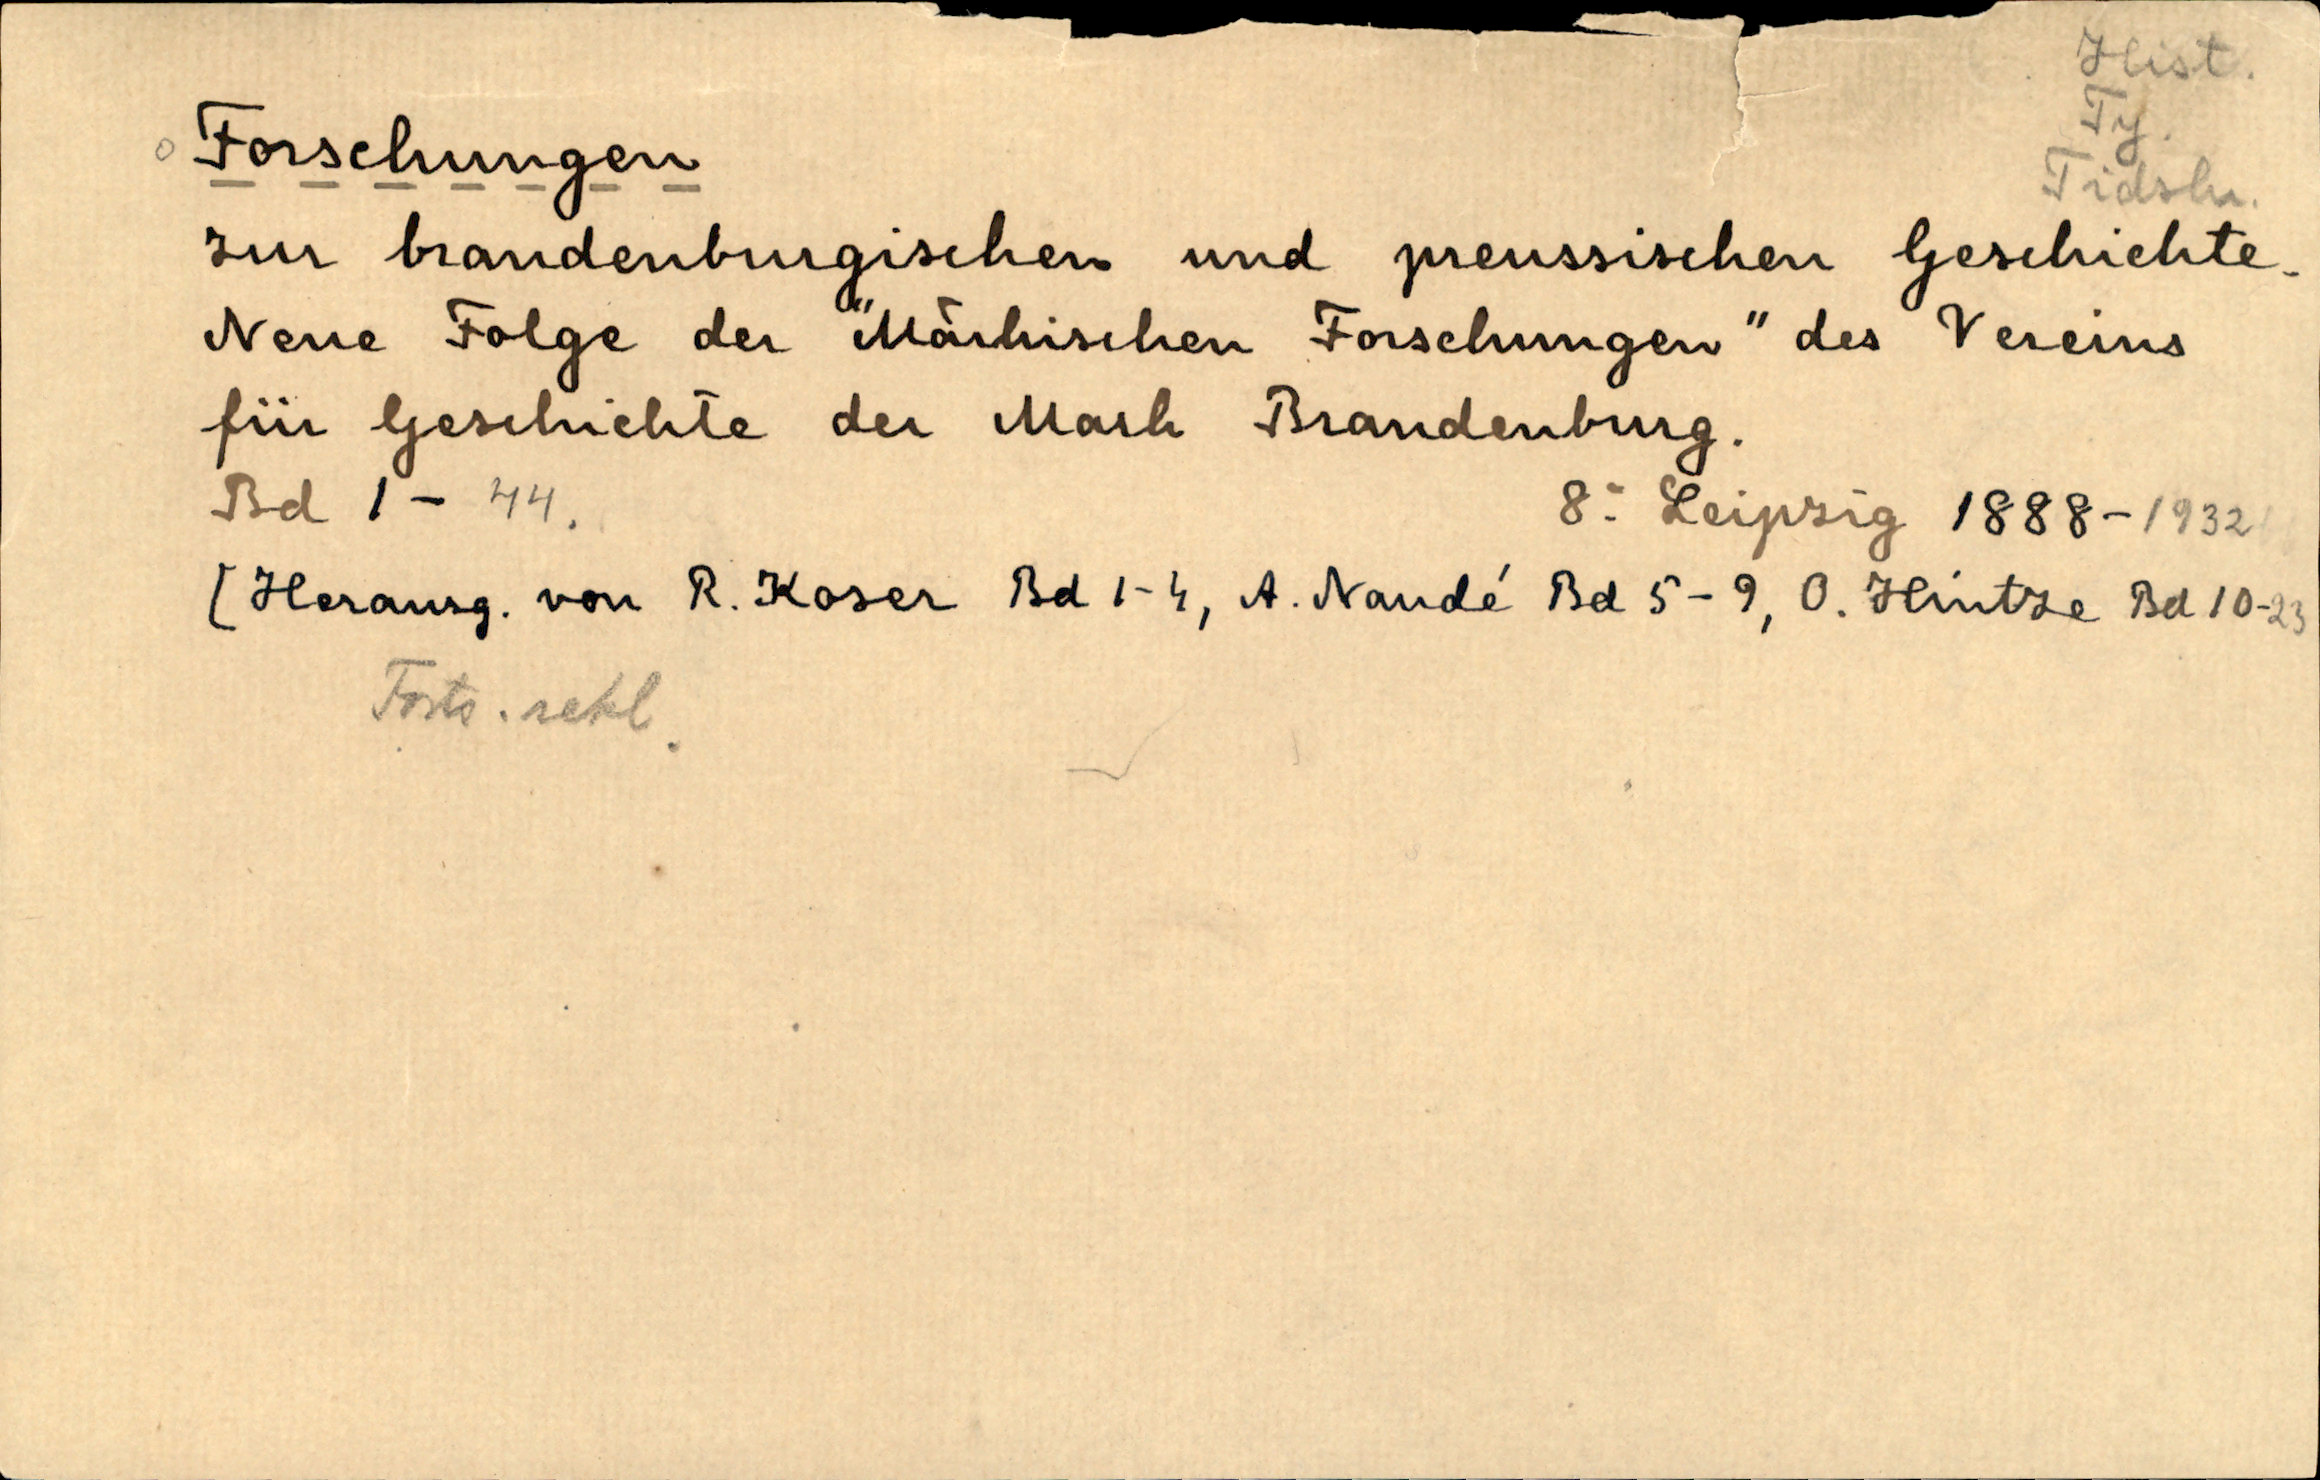 Hist.
Ty.
Tidskr.
Forschungen
zur brandenburgischen und preussischen Geschichte.
Neue Folge der "Märkischen Forschungen" des Vereins
für Geschichte der Mark Brandenburg.
Bd 1 - 44. 8:o Leipzig 1888-1932
[Herausg. von R. Koser Bd 1-4, A. Naudé Bd 5-9, O. Hintze Bd 10-23
Forts. rekl.